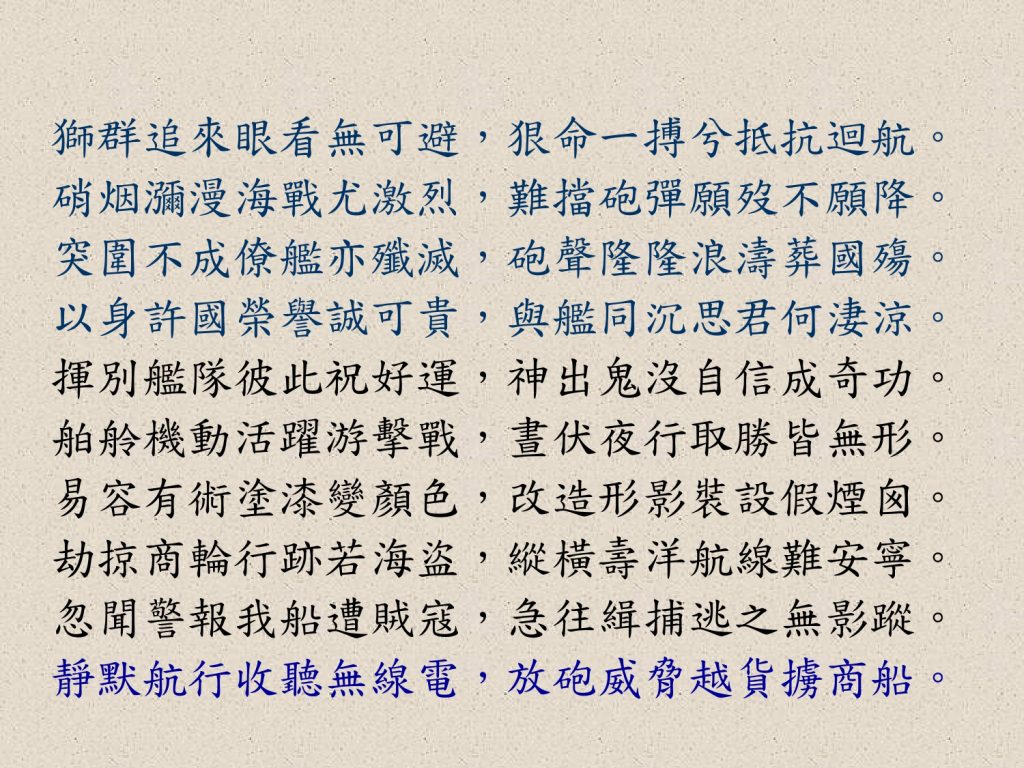 獅群追來眼看無可避，狠命一搏兮抵抗迴航。
硝烟瀰漫海戰尤激烈，難擋砲彈願歿不願降。
突圍不成僚艦亦殲滅，砲聲隆隆浪濤葬國殤。
以身許國榮譽誠可貴，與艦同沉思君何淒涼。
揮別艦隊彼此祝好運，神出鬼沒自信成奇功。
舶舲機動活躍游擊戰，晝伏夜行取勝皆無形。
易容有術塗漆變顏色，改造形影裝設假煙囪。
劫掠商輪行跡若海盜，縱橫壽洋航線難安寧。
忽聞警報我船遭賊寇，急往緝捕逃之無影蹤。
靜默航行收聽無線電，放砲威脅越貨擄商船。